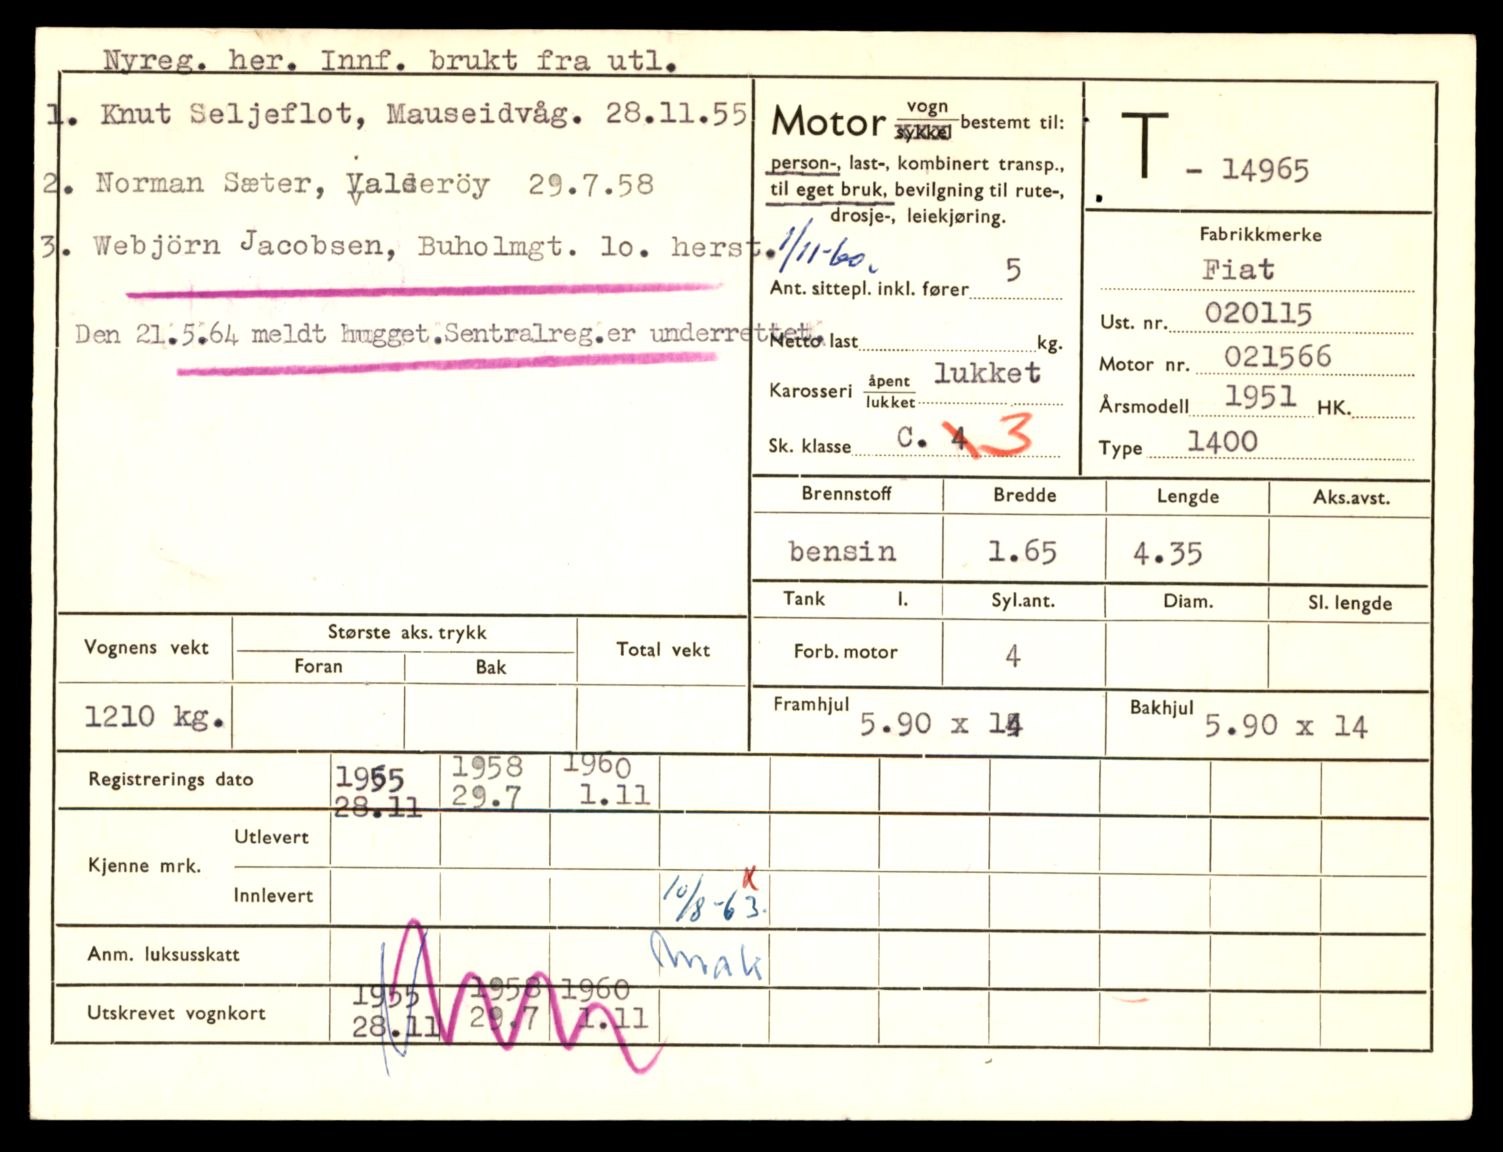 Nyreg. her. Innf. brukt fra utl.
1. Knut Seljeflot, Mauseidvåg. 28.11.55
2. Norman Sæter, Valderöy 29.7.58
3. Webjörn Jacobsen, Buholmgt. lo. herst. 1/11-60.
Den 21.5.64 meldt hugget.Sentralreg.er underrettet.
Motor vogn
sykkel bestemt til:
person-, last-, kombinert transp.,
til eget bruk, bevilgning til rute-,
drosje-, leiekjøring.
Ant. sittepl. inkl. fører 5
Netto last kg.
Karosseri åpent
lukket lukket
Sk. klasse C. 4 3
T - 14965
Fabrikkmerke
Fiat
Ust. nr. 020115
Motor nr. 021566
Årsmodell 1951 HK.
Type 1400
Brennstoff Bredde Lengde Aks.avst.
bensin 1.65 4.35
Tank l. Syl.ant. Diam. Sl. lengde
Forb. motor 4
Framhjul 5.90 x 14 Bakhjul 5.90 x 14
Vognens vekt Største aks. trykk Total vekt
Foran Bak
1210 kg.
Registrerings dato 1955 1958 1960
28.11 29.7 1.11
Kjenne mrk. Utlevert
Innlevert 10/8-63. x
Anm. luksusskatt
Utskrevet vognkort 1955 1958 1960
28.11 29.7 1.11